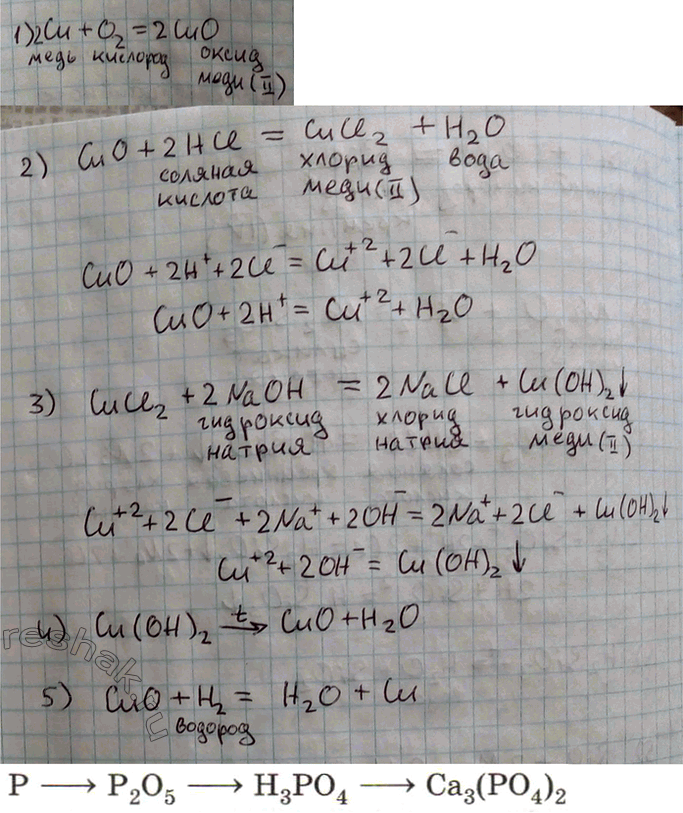 1) 2Cu + O₂ = 2CuO
медь кислород оксид
меди (II)
2) CuO + 2HCl = CuCl₂ + H₂O
соляная хлорид вода
кислота меди (II)
CuO + 2H⁺ + 2Cl⁻ = Cu⁺² + 2Cl⁻ + H₂O
CuO + 2H⁺ = Cu⁺² + H₂O
3) CuCl₂ + 2NaOH = 2NaCl + Cu(OH)₂↓
гидроксид хлорид гидроксид
натрия натрия меди (II)
Cu⁺² + 2Cl⁻ + 2Na⁺ + 2OH⁻ = 2Na⁺ + 2Cl⁻ + Cu(OH)₂↓
Cu⁺² + 2OH⁻ = Cu(OH)₂↓
4) Cu(OH)₂ —t→ CuO + H₂O
5) CuO + H₂ = H₂O + Cu
водород
reshak.ru
P → P₂O₅ → H₃PO₄ → Ca₃(PO₄)₂